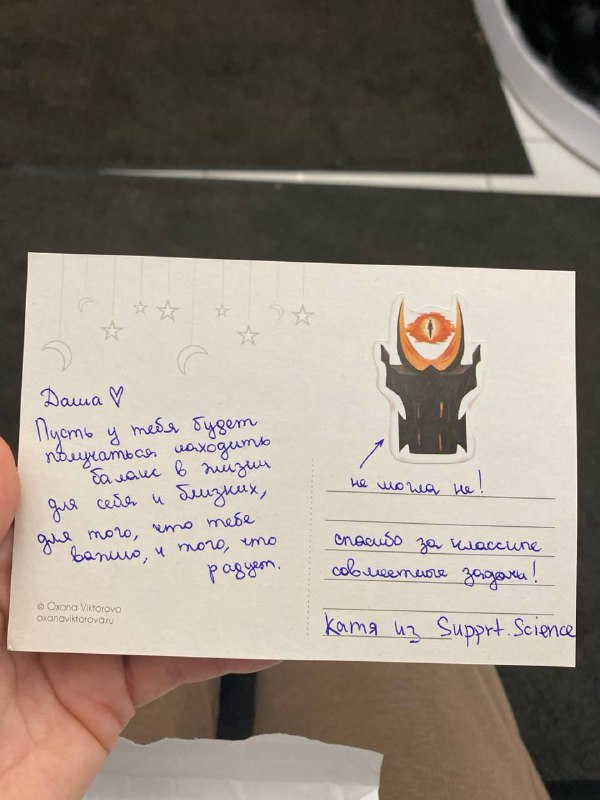 Даша ♡
Пусть у тебя будет
получаться находить
баланс в жизни
для себя и близких,
для того, что тебе
важно, и того, что
радует.
© Oxana Viktorova
oxanaviktorova.ru
не могла не!
спасибо за классные
совместные задачи!
Катя из Supprt.Science